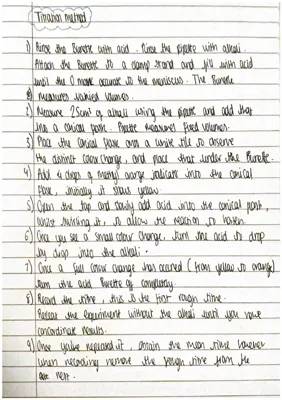 Titration method
1) Rinse the Burette with acid. Rinse the pipette with alkali.
Attach the Burette to a clamp stand and fill with acid
until the 0 mark at the meniscus. The Burette
measures varied volumes.
2) Measure 25cm³ of alkali using the pipette and add that
into a conical flask. Pipette measures fixed volumes.
3) Place the conical flask onto a white tile to observe
the distinct colour change, and place that under the Burette.
4) Add 4 drops of methyl orange indicator into the conical
flask, initially it shows yellow
5) Open the tap and slowly add acid into the conical flask,
whilst swirling it, to allow the reaction to
6) Once you see a small colour change, turn the acid to drop
by drop into the alkali.
7) Once a full colour change has occured (from yellow to orange)
turn the acid Burette off completely.
8) Record the titre, this is the first rough titre.
Repeat the experiment without the alkali until you have
concordant results.
9) Once you've repeated it, obtain the mean titre however
when recording remove the rough titre from the
rest.